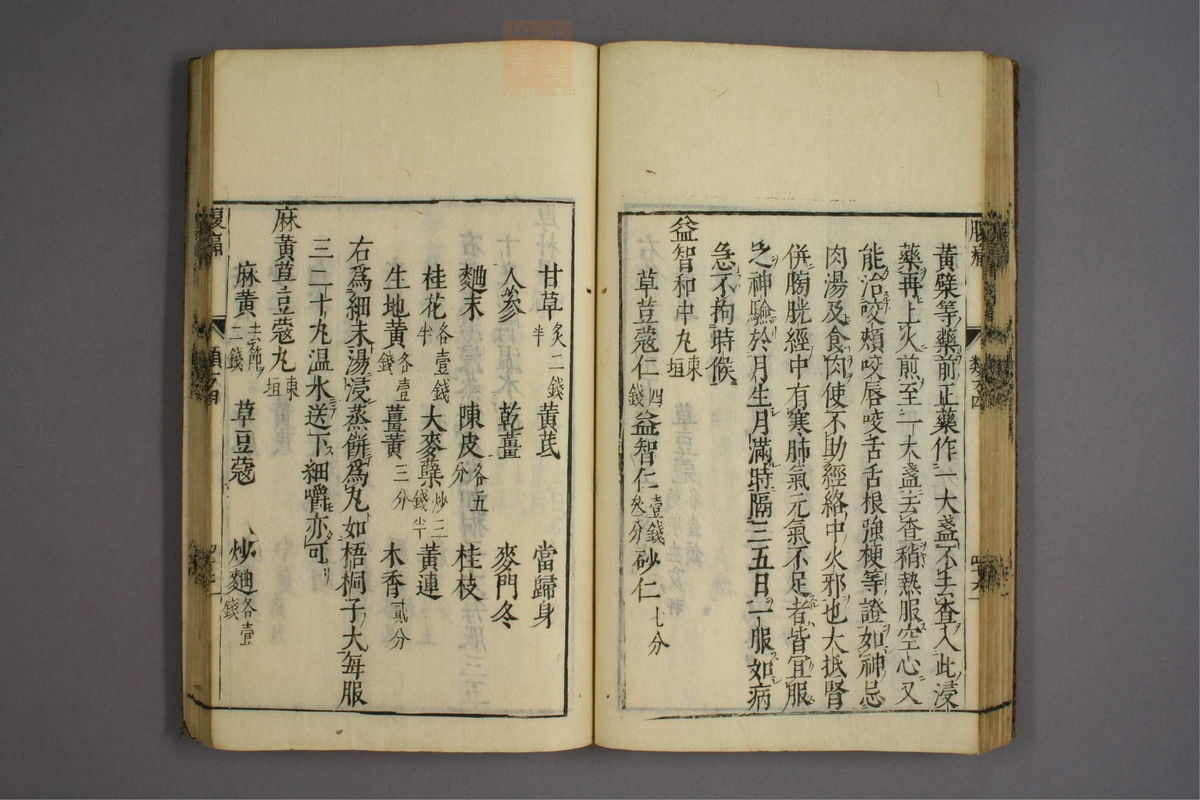 黃蘗等藥前正藥作一大盞不去查入此浸
藥再上火煎至二大盞去查稍熱服空心又
能治咬頰咬唇咬舌舌根強梗等證如神忌
肉湯及食肉使不助經絡中火邪也大抵腎
併膀胱經中有寒肺氣元氣不足者皆宜服
之神驗於月生月滿時隔三五日一服如病
急不拘時候
益智和中丸東垣
草豆蔻仁四錢 益智仁壹錢叁分 砂仁七分
甘草炙二錢半 黃芪 當歸身
人參 乾薑 麥門冬
麯末 陳皮各五分 桂枝
桂花各壹錢半 大麥蘗炒二錢半 黃連
生地黃各壹錢 薑黃三分 木香貳分
右為細末湯浸蒸餅為丸如梧桐子大每服
三二十丸温水送下細嚼亦可
麻黃草豆蔻丸東垣
麻黃去節二錢 草豆蔻 炒麯各壹錢
腹痛